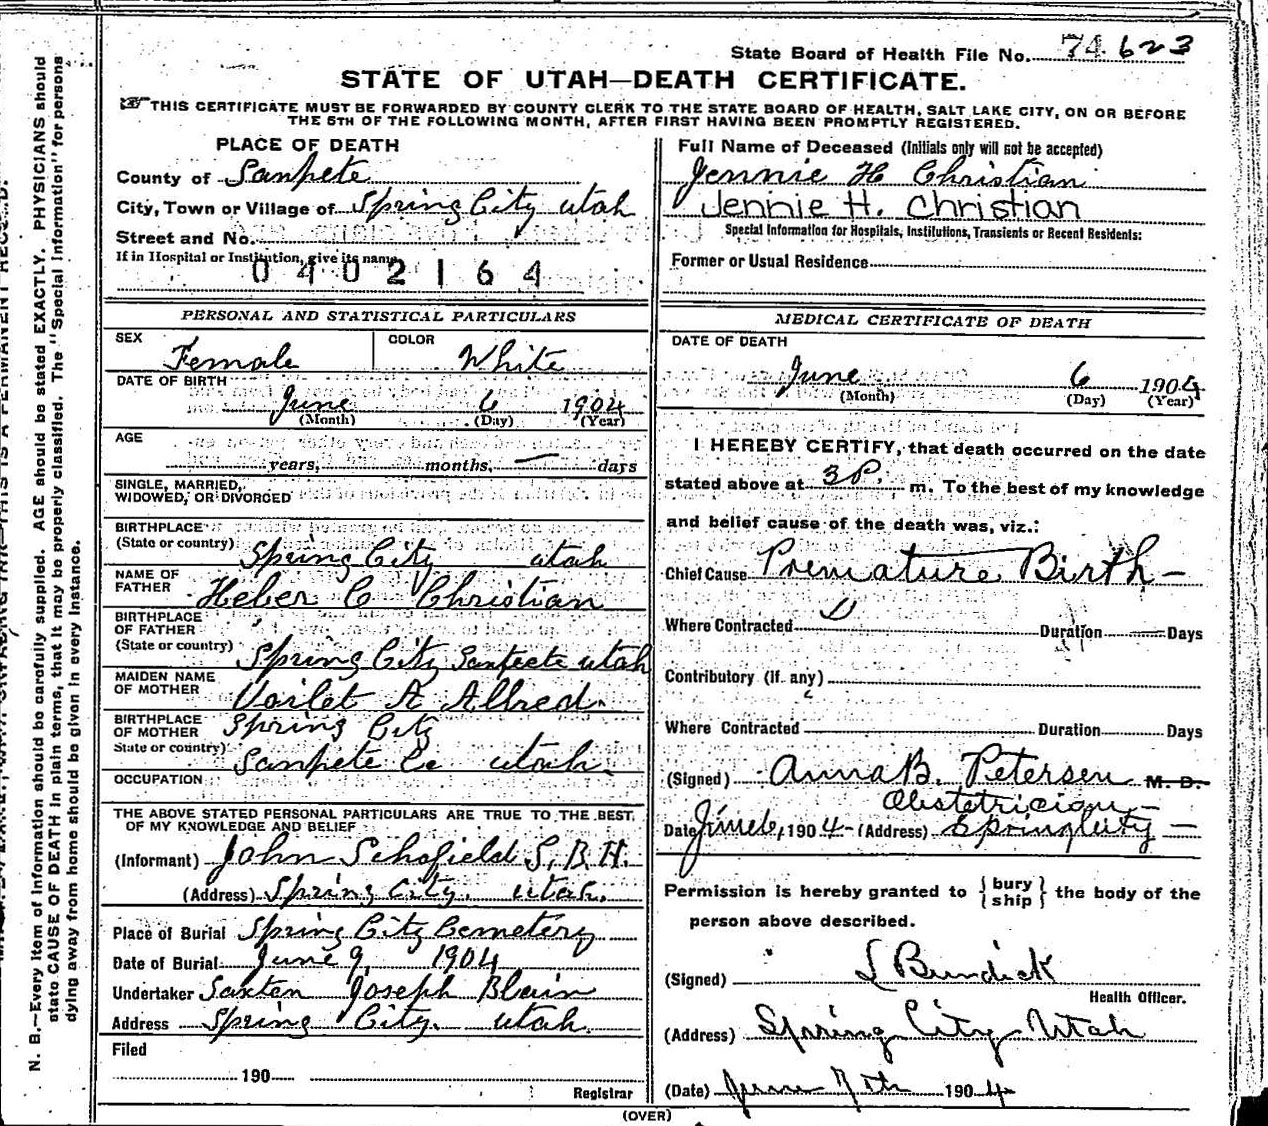 State Board of Health File No. 74 623
STATE OF UTAH—DEATH CERTIFICATE.
THIS CERTIFICATE MUST BE FORWARDED BY COUNTY CLERK TO THE STATE BOARD OF HEALTH, SALT LAKE CITY, ON OR BEFORE
THE 5TH OF THE FOLLOWING MONTH, AFTER FIRST HAVING BEEN PROMPTLY REGISTERED.
PLACE OF DEATH
County of Sanpete
City, Town or Village of Spring City Utah
Street and No.
If in Hospital or Institution, give its name
0402164
Full Name of Deceased (Initials only will not be accepted)
Jennie H Christian
Jennie H. Christian
Special Information for Hospitals, Institutions, Transients or Recent Residents:
Former or Usual Residence
PERSONAL AND STATISTICAL PARTICULARS
SEX Female COLOR White
DATE OF BIRTH
June 6 1904
(Month) (Day) (Year)
AGE
years, months, — days
SINGLE, MARRIED,
WIDOWED, OR DIVORCED
BIRTHPLACE
(State or country) Spring City Utah
NAME OF
FATHER Heber C Christian
BIRTHPLACE
OF FATHER
(State or country) Spring City Sanpete Utah
MAIDEN NAME
OF MOTHER Voilet A Allred
BIRTHPLACE
OF MOTHER Spring City
State or country) Sanpete Co Utah.
OCCUPATION
THE ABOVE STATED PERSONAL PARTICULARS ARE TRUE TO THE BEST
OF MY KNOWLEDGE AND BELIEF
(Informant) John Schofield S. B. H.
(Address) Spring City. Utah.
Place of Burial Spring City Cemetery
Date of Burial June 9, 1904
Undertaker Saxten Joseph Blain
Address Spring City. Utah.
Filed
190
Registrar
MEDICAL CERTIFICATE OF DEATH
DATE OF DEATH
June 6 1904
(Month) (Day) (Year)
I HEREBY CERTIFY, that death occurred on the date
stated above at 3 P. m. To the best of my knowledge
and belief cause of the death was, viz.:
Chief Cause Premature Birth —
Where Contracted Duration Days
Contributory (If any)
Where Contracted Duration Days
(Signed) Anna B. Petersen M. D.
Obstetrician —
Date June 6, 1904 (Address) Spring City —
Permission is hereby granted to { bury ship } the body of the
person above described.
(Signed) L Bundick
Health Officer.
(Address) Spring City Utah
(Date) June 7th 1904
(OVER)
N. B.—Every item of information should be carefully supplied. AGE should be stated EXACTLY. PHYSICIANS should
state CAUSE OF DEATH in plain terms, that it may be properly classified. The "Special Information" for persons
dying away from home should be given in every instance.